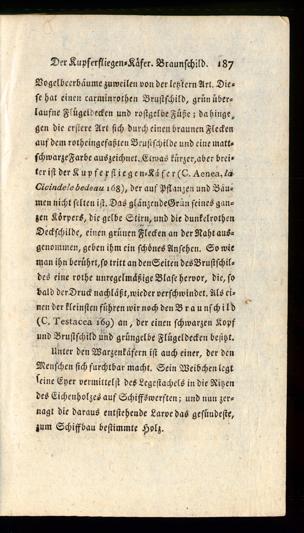 Der Kupferfliegen-Käfer. Braunschild. 187
Vogelbeerbäume zuweilen von der letztern Art. Die-
se hat einen carminrothen Brustschild, grün über-
laufne Flügeldecken und rostgelbe Füße; da hinge-
gen die erstere Art sich durch einen braunen Flecken
auf dem rotheingefaßten Brustschilde und eine matt-
schwarze Farbe auszeichnet. Etwas kürzer, aber brei-
ter ist der Kupferfliegen-Käfer (C. Aenea, la
Cicindele bedeau 168), der auf Pflanzen und Bäu-
men nicht selten ist. Das glänzende Grün seines gan-
zen Körpers, die gelbe Stirn, und die dunkelrothen
Deckschilde, einen grünen Flecken an der Naht aus-
genommen, geben ihm ein schönes Ansehen. So wie
man ihn berührt, so tritt an den Seiten des Brustschil-
des eine rothe unregelmäßige Blase hervor, die, so
bald der Druck nachläßt, wieder verschwindet. Als ei-
nen der kleinsten führen wir noch den Braunschild
(C. Testacea 169) an, der einen schwarzen Kopf
und Brustschild und grüngelbe Flügeldecken besitzt.
Unter den Warzenkäfern ist auch einer, der den
Menschen sich furchtbar macht. Sein Weibchen legt
seine Eyer vermittelst des Legestachels in die Ritzen
des Eichenholzes auf Schiffswerften; und nun zer-
nagt die daraus entstehende Larve das gesündeste,
zum Schiffbau bestimmte Holz.